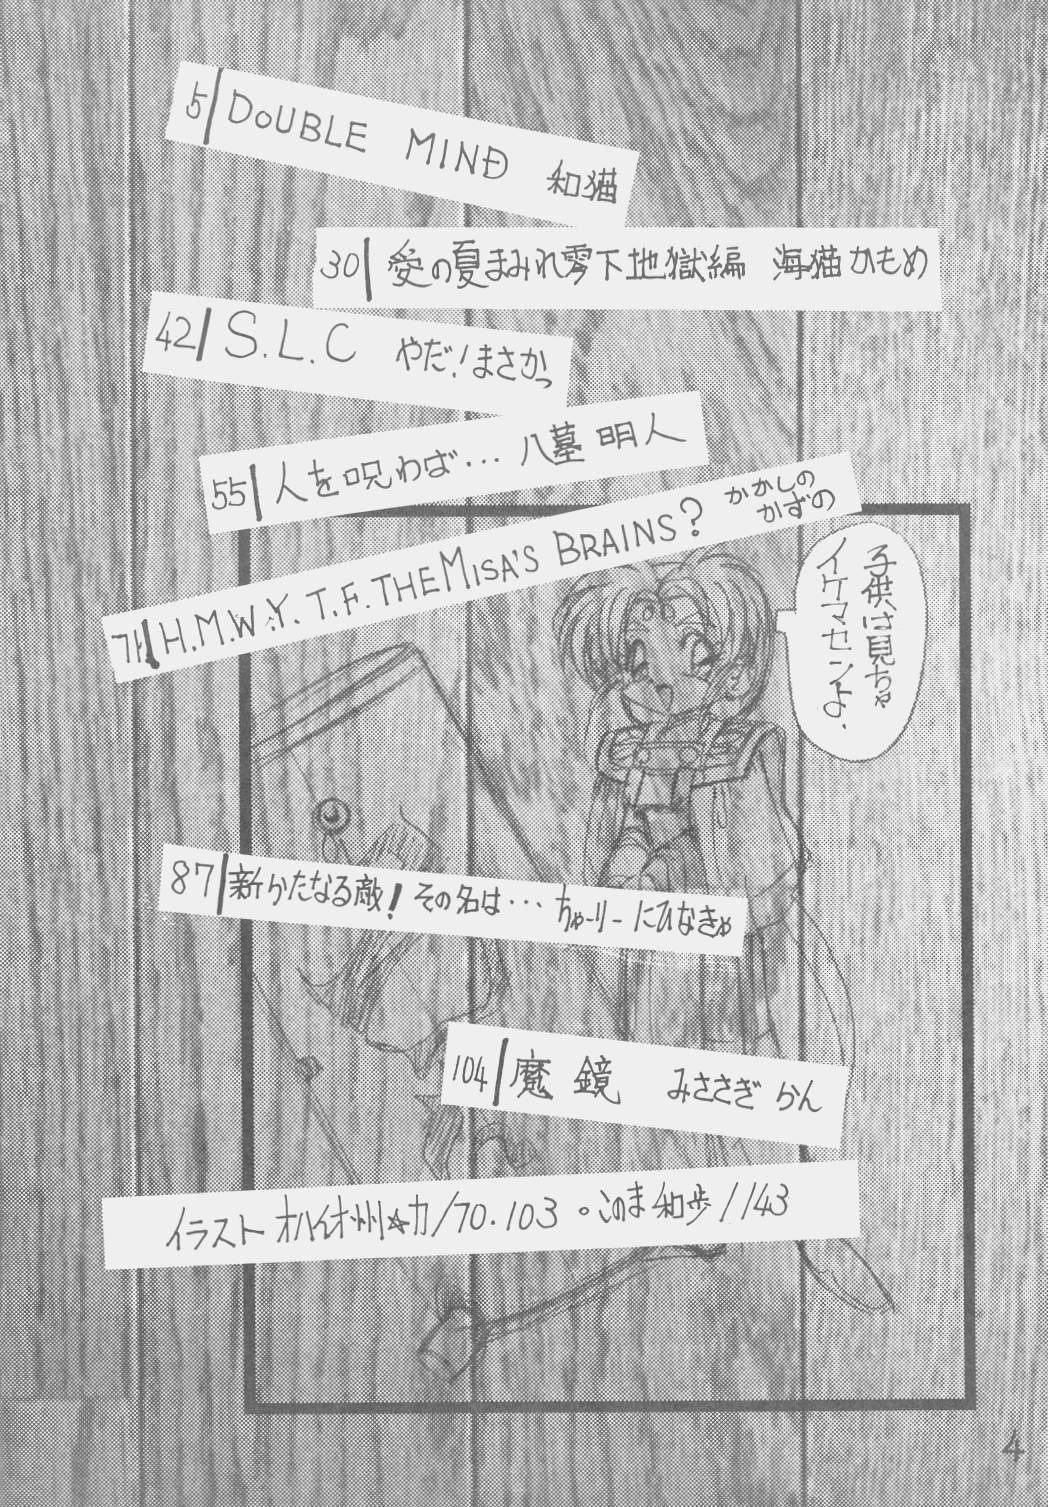 5 DOUBLE MIND 和猫
30 愛の夏まみれ零下地獄編 海猫かもめ
42 S.L.C やだ!まさかっ
55 人を呪わば… 八墓明人
71 H.M.W.Y. T.F. THE MISA'S BRAINS? かかしの
かずの
子供は見ちゃ
イケマセンよ.
87 新かたなる敵! その名は… ちゃーりーにひなきゃ
104 魔鏡 みささぎ らん
イラスト 州☆力/70.103 。このま和歩/143
4